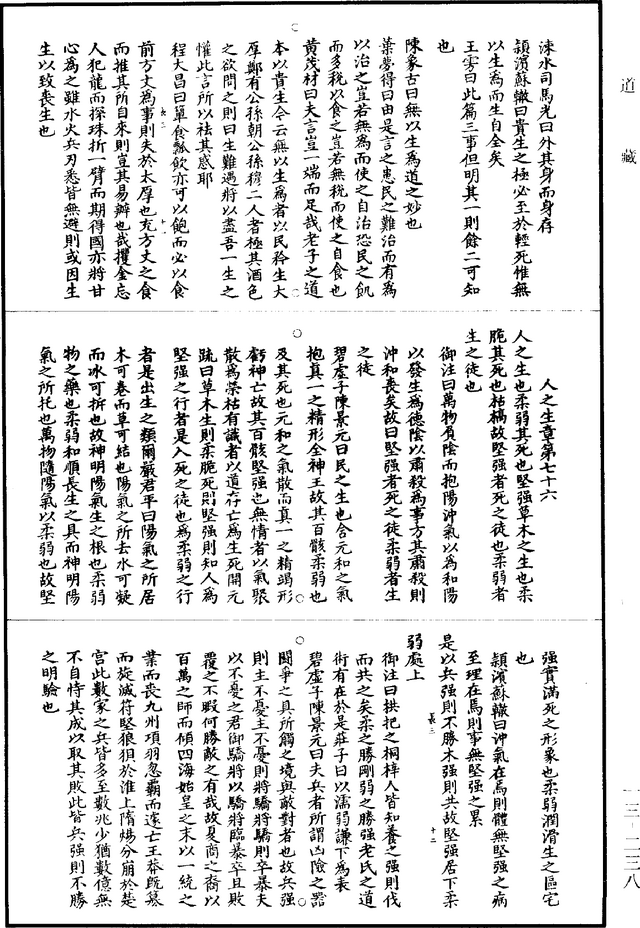 道藏
涑水司馬光曰外其身而身存
潁濱蘇轍曰貴生之極必至於輕死惟無
以生為而生自全矣
王雱曰此篇三事但明其一則餘二可知
也
陳象古曰無以生為道之妙也
葉夢得曰由是言之患民之難治而有為
以治之豈若無為而使之自治恐民之飢
而多稅以食之豈若無稅而使之自食也
黃茂材曰夫言豈一端而足哉老子之道
本以貴生今云無以生為者以民矜生大
厚鄭有公孫朝公孫穆二人者極其酒色
之欲問之則曰生難遇將以盡吾一生之
懽此言所以袪其惑耶
程大昌曰簞食瓢飲亦可以飽而必以食
前方丈為事則失於太厚也充方丈之食
而推其所自來則豈其易辦也哉攫金忘
人犯龍而探珠折一臂而期得國亦將甘
心為之雖水火兵刃悉皆無避則或因生
生以致喪生也
人之生章第七十六
人之生也柔弱其死也堅強草木之生也柔
脆其死也枯槁故堅強者死之徒也柔弱者
生之徒也
御注曰萬物負陰而抱陽沖氣以為和陽
以發生為德陰以肅殺為事方其肅殺則
沖和喪矣故曰堅強者死之徒柔弱者生
之徒
碧虛子陳景元曰民之生也含元和之氣
抱真一之精形全神王故其百骸柔弱也
及其死也元和之氣散而真一之精竭形
虧神亡故其百骸堅強也無情者以氣聚
散為榮枯有識者以道存亡為生死開元
疏曰草木生則柔脆死則堅強則知人為
堅強之行者是入死之徒也為柔弱之行
者是出生之類爾嚴君平曰陽氣之所居
木可卷而草可結也陽氣之所去水可凝
而冰可折也故神明陽氣生之根也柔弱
物之藥也柔弱和順長生之具而神明陽
氣之所托也萬物隨陽氣以柔弱也故堅
強實滿死之形象也柔弱潤滑生之區宅
也
潁濱蘇轍曰沖氣在焉則體無堅強之病
至理在焉則事無堅強之累
是以兵強則不勝木強則共故堅強居下柔
弱處上
御注曰拱把之桐梓人皆知養之強則伐
而共之矣柔之勝剛弱之勝強老氏之道
術有在於是莊子曰以濡弱謙下為表
碧虛子陳景元曰夫兵者所謂凶險之器
鬪爭之具所觸之境與敵對者也故兵強
則主不憂主不憂則將驕將驕則卒暴夫
以不憂之君御驕將以驕將臨暴卒且敗
覆之不暇何勝敵之有哉故夏商之裔以
百萬之師而傾四海始皇之末以一統之
業而喪九州項羽忽霸而遂亡王莽既篡
而旋滅符堅狼狽於淮上隋煬分崩於楚
宮此數家之兵皆多至數兆少猶數億無
不自恃其成以取其敗此皆兵強則不勝
之明驗也
長三 十二
一三—二三八